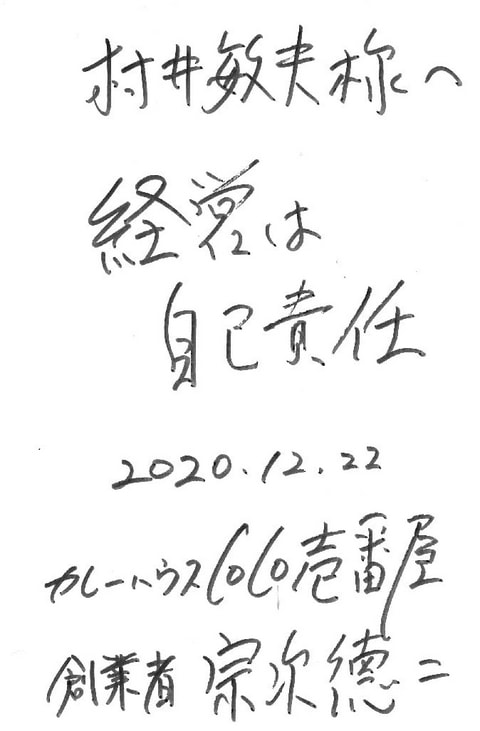 村井敏夫様へ
経営は
自己責任
2020.12.22
カレーハウスCoCo壱番屋
創業者 宗次德二